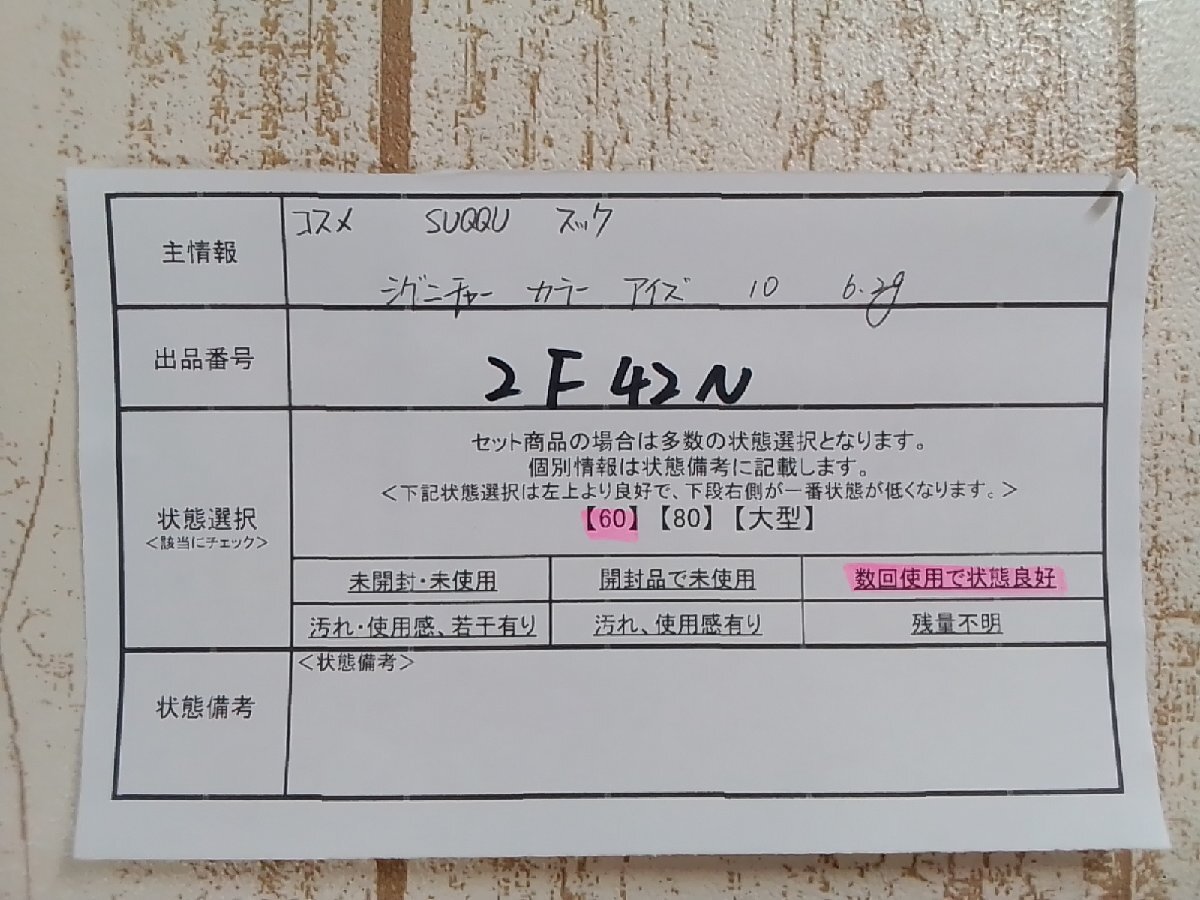 主情報
コスメ SUQQU スック
シグニチャー カラー アイズ 10 6.2g
出品番号
2F42N
状態選択
＜該当にチェック＞
セット商品の場合は多数の状態選択となります。
個別情報は状態備考に記載します。
＜下記状態選択は左上より良好で、下段右側が一番状態が低くなります。＞
【60】【80】【大型】
未開封・未使用 開封品で未使用 数回使用で状態良好
汚れ・使用感、若干有り 汚れ、使用感有り 残量不明
状態備考
＜状態備考＞